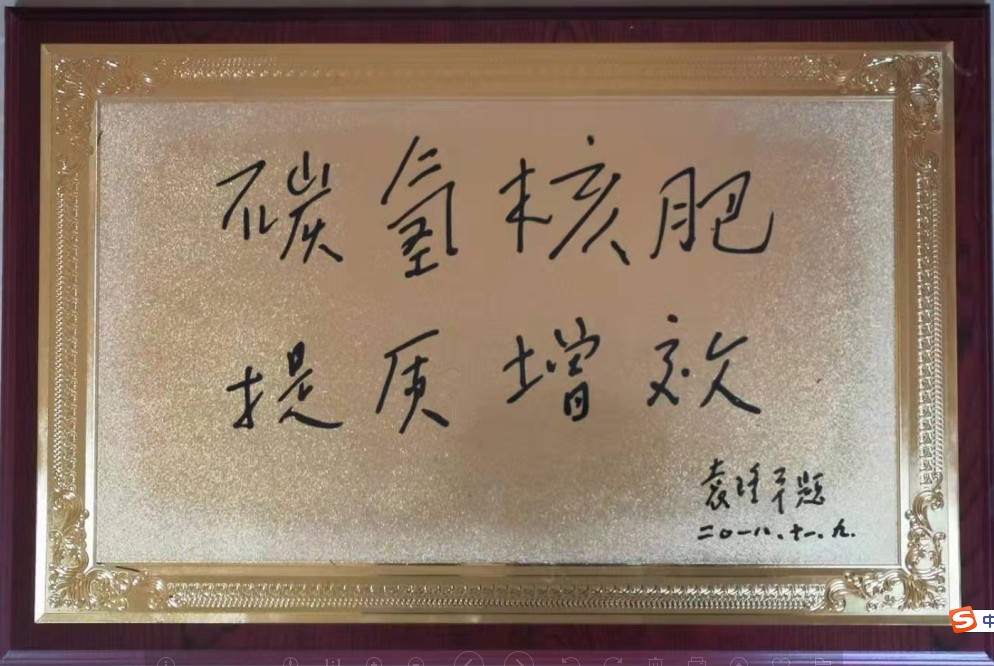 碳氢核肥
提质增效
袁隆平题
二〇一八.十一.九.
中